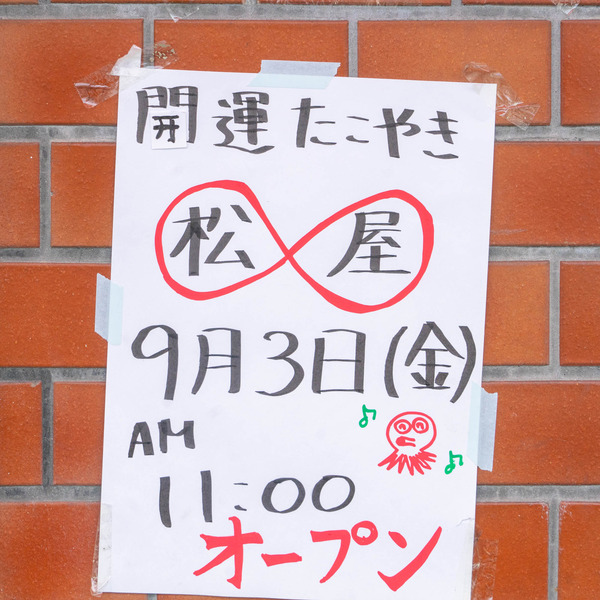 開運たこやき
松屋
9月3日(金)
AM
11:00
オープン